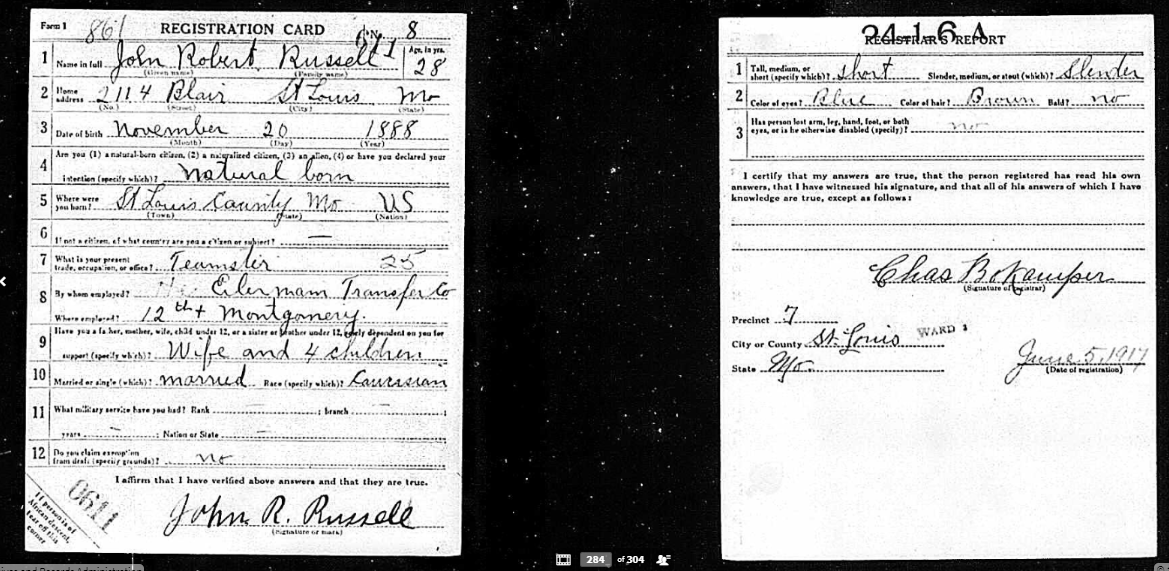 Form 1 861 REGISTRATION CARD No. 8
1 Name in full John Robert Russell Age, in yrs. 28
(Given name) (Family name)
2 Home address 2114 Blair St Louis Mo
(No.) (Street) (City) (State)
3 Date of birth November 20 1888
(Month) (Day) (Year)
4 Are you (1) a natural-born citizen, (2) a naturalized citizen, (3) an alien, (4) or have you declared your
intention (specify which)? natural born
5 Where were you born? St Louis County Mo US
(Town) (State) (Nation)
6 If not a citizen, of what country are you a citizen or subject? —
7 What is your present trade, occupation, or office? Teamster 25
8 By whom employed? Eilermam Transfer Co
Where employed? 12th + Montgomery.
9 Have you a father, mother, wife, child under 12, or a sister or brother under 12, solely dependent on you for
support (specify which)? Wife and 4 children
10 Married or single (which)? married Race (specify which)? Caucasian
11 What military service have you had? Rank — ; branch — ;
years — ; Nation or State —
12 Do you claim exemption from draft (specify grounds)? no
I affirm that I have verified above answers and that they are true.
John R. Russell
(Signature or mark)
0611
If person is of African descent, tear off this corner
24-1-6 A
REGISTRAR'S REPORT
1 Tall, medium, or short (specify which)? short Slender, medium, or stout (which)? Slender
2 Color of eyes? Blue Color of hair? Brown Bald? no
3 Has person lost arm, leg, hand, foot, or both eyes, or is he otherwise disabled (specify)? no
I certify that my answers are true, that the person registered has read his own
answers, that I have witnessed his signature, and that all of his answers of which I have
knowledge are true, except as follows:
Chas Bokamper
(Signature of registrar)
Precinct 7
City or County St. Louis WARD 3
State Mo.
June 5, 1917
(Date of registration)
284 of 304